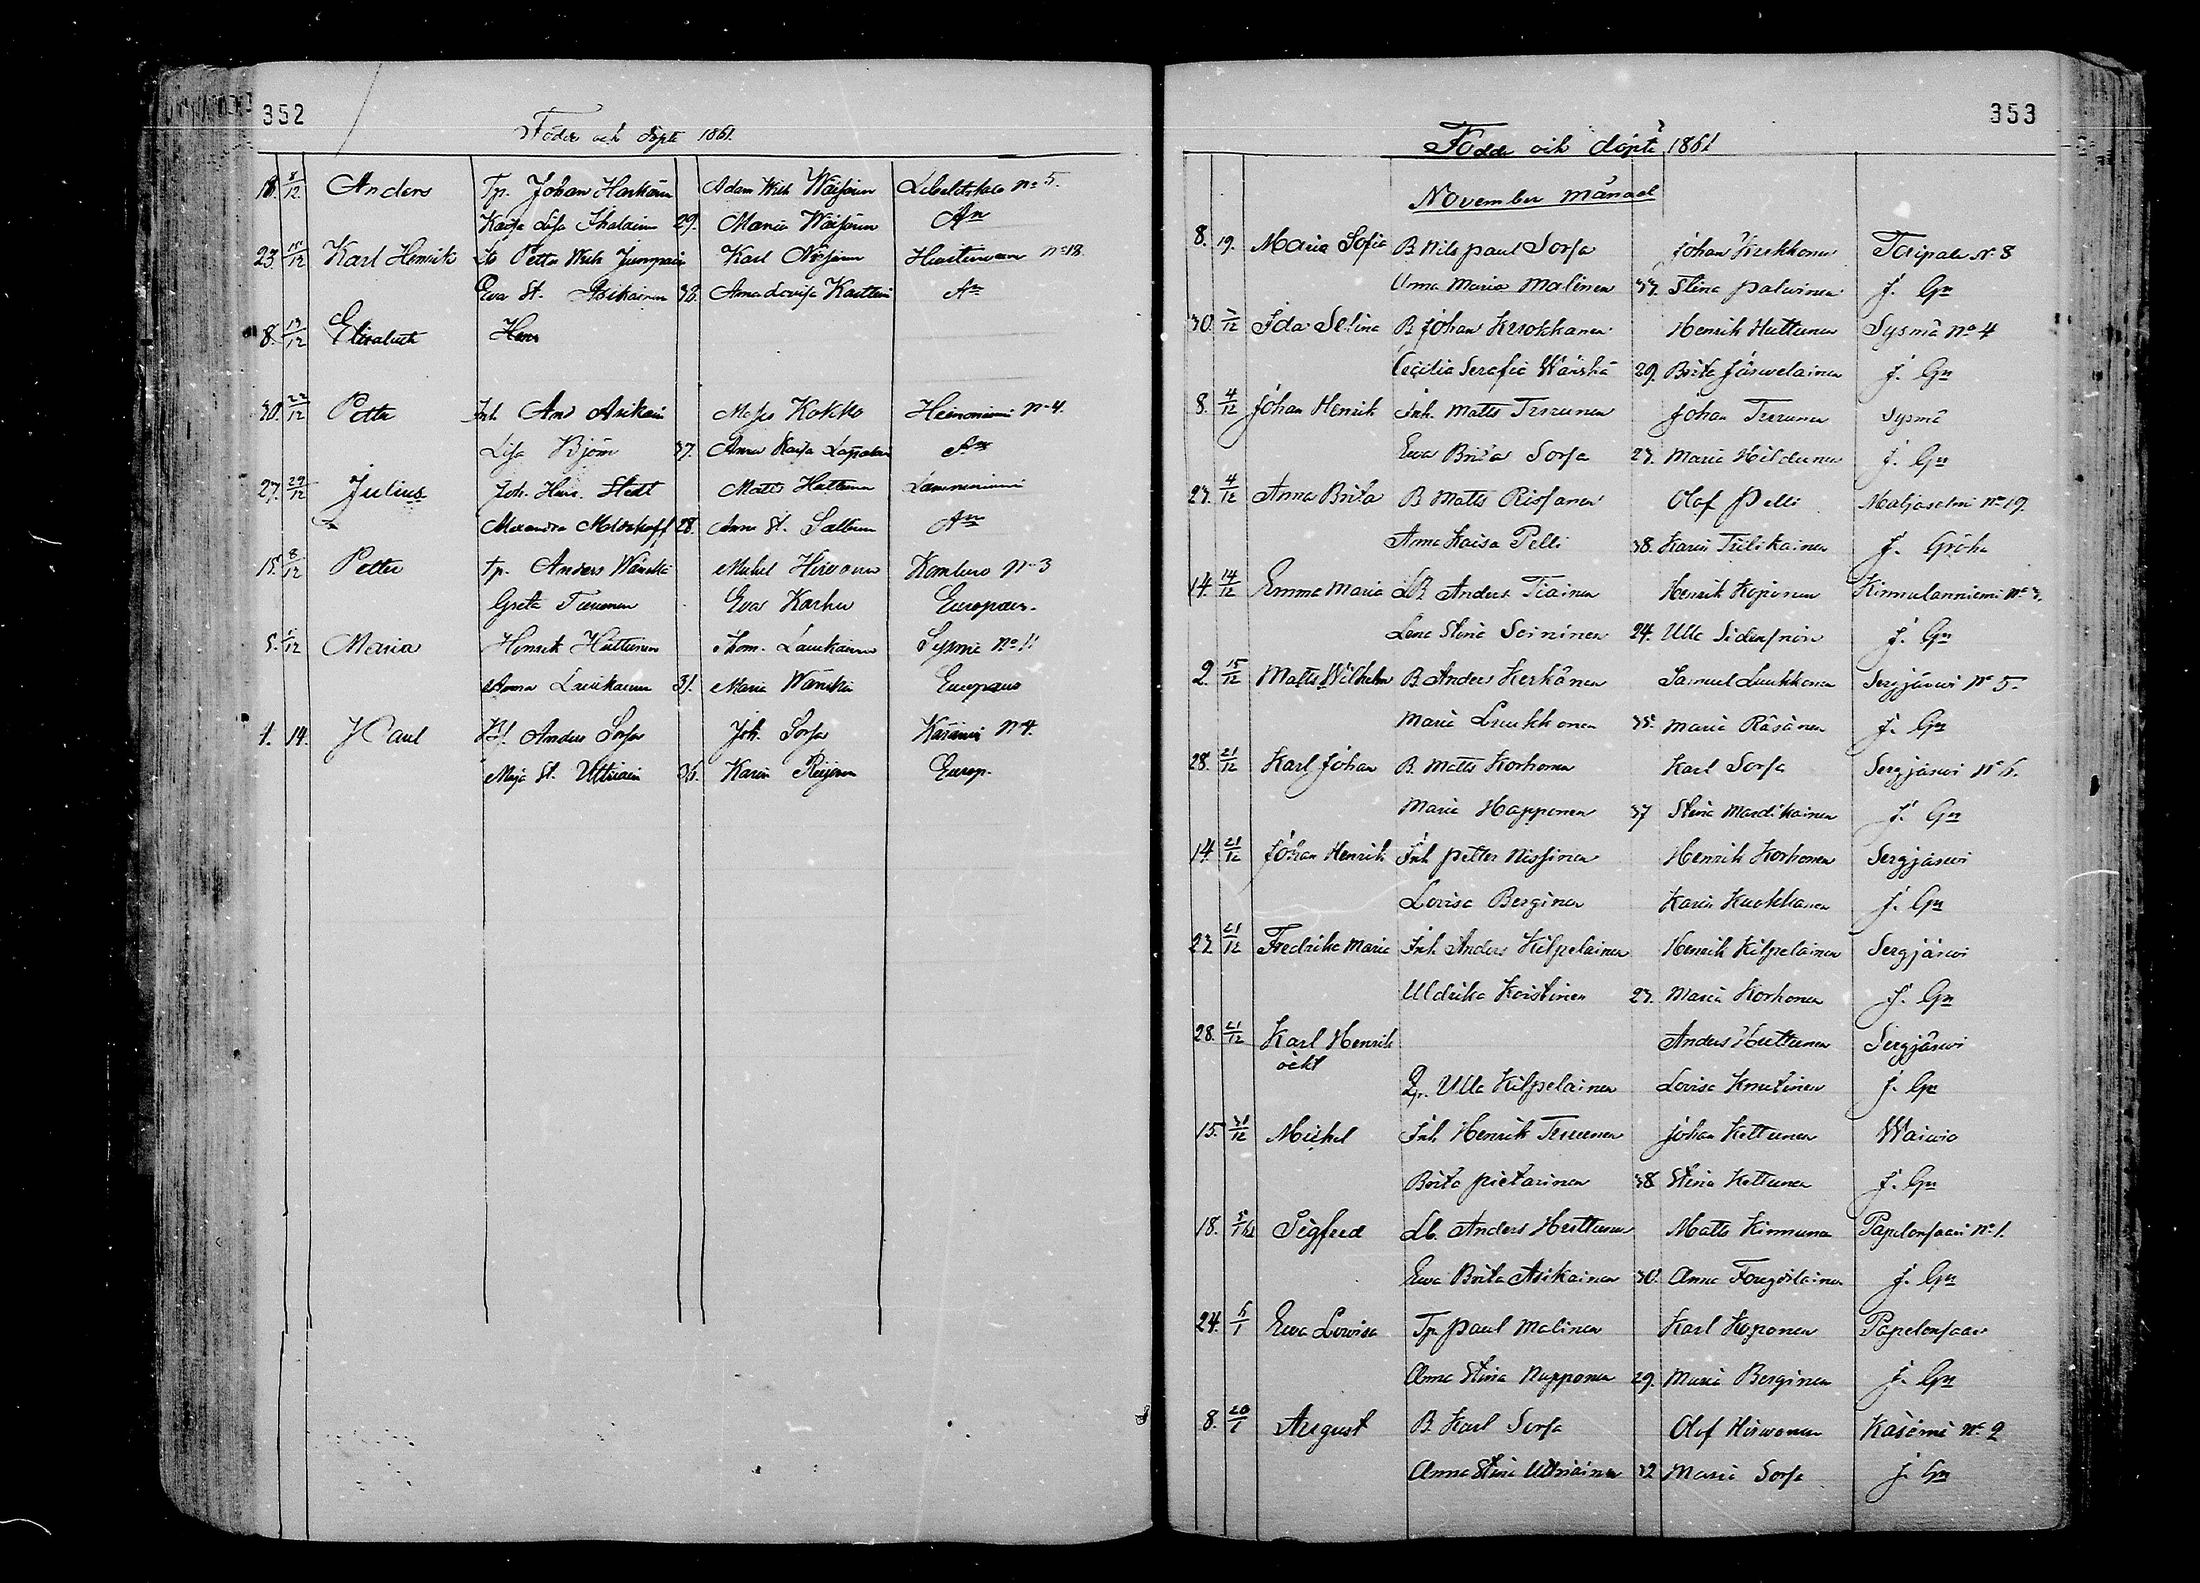 352
Födde och döpte 1861.
18. 8/12 Anders Tp. Johan Harkönen Adam Wilh Wäisänen Libelitskulo No 5.
Kaisa Lisa Ihalainen 29. Maria Wäisänen An
23. 15/12 Karl Henrik Petter Wilh Karl No 18.
Eva St. Asikainen 32. Anna Lovisa An
8. 13/12 Elisabeth Hen
30. 22/12 Petter Inh. And Asikain Moses Kokko Heinoniemi No 4.
Lisa Björn 37. Anna Kaisa An
27. 29/12 Julius Joh. Stedt Matts Huttunen Lamminniemi
Alexandra 28. Anna St. An
15. 8/12 Petter Tp. Anders Wänskä Mickel Hirvonen Kombero No 3
Greta Turunen Eva Karhu Europaeus.
5. /12 Maria Henrik Huttunen Thom. Laukkanen Sysmä No 11
Anna 31. Maria Wänskä Europaeus
1. 14. Paul Bf. Anders Sorsa Joh. Sorsa Käsämä No 4.
Maja St. Uttriain 36. Karin Europ.
353
Födde och döpte 1861
November månad
8. 19. Maria Sofia B Nils paul Sorsa Johan Kukkonen Taipale No 8
Anna Maria Malinen 33. Stina palvinen f. Gm
30. /12 Ida Selina B Johan Kuokkanen Henrik Huttunen Sysmä No 4
Cecilia Serafia Wänskä 29. Brita Järwelainen f. Gm
8. 4/12 Johan Henrik Inh. Matts Turunen Johan Turunen Sysmä
Ewa Brita Sorsa 23. Maria Hildunen f. Gm
23. 4/12 Anna Brita B Matts Rissanen Olof Pelli Maljasalmi No 19
Anna Kaisa Pelli 38. Karin Tiilikainen f. Gröhn
14. 14/12 Emma Maria LB Anders Tiainen Henrik Koponen Kinnulanniemi No 3.
Lena Stina Soininen 24. Ulla f. Gm
2. 15/12 Matts Wilhelm B. Anders Kerkänen Samuel Luukkonen Sergjärwi No 5.
Maria Luukkonen 35. Maria Räsänen f. Gm
28. 21/12 Karl Johan B. Matts Korhonen Karl Sorsa Sergjärwi No 6.
Maria Happonen 37 Stina Mardikainen f. Gm
14. 21/12 Johan Henrik Inh petter Nissinen Henrik Korhonen Sergjärwi
Lovisa Berginen Karin Kuokkanen f. Gm
23. 21/12 Fredrika Maria Inh. Anders Kilpelainen Henrik Kilpelainen Sergjärwi
Uldrika Koistinen 23. Maria Korhonen f. Gm
28. 21/12 Karl Henrik Anders Huttunen Sergjärwi
oäkt
Ulla Kilpelainen Lovisa Knutinen f. Gm
15. 31/12 Mickel Inh Henrik Turunen Johan Kettunen Waiwio
Brita pietarinen 38 Stina Kettunen f. Gm
18. Sigfred Lb. Anders Huttunen Matts Kinnunen Papelonsaari No 1.
Ewa Brita Asikainen 30. Anna f. Gm
24. 6/1 Ewa Lowisa Tp paul Malinen Karl Koponen Papelonsaari
Anna Stina Nupponen 29. Maria Berginen f. Gm
8. 20/1 August B. Karl Sorsa Olof Hirwonen Käsämä No 2
Anna Stina Uttriainen 32 Maria Sorsa f. Gm